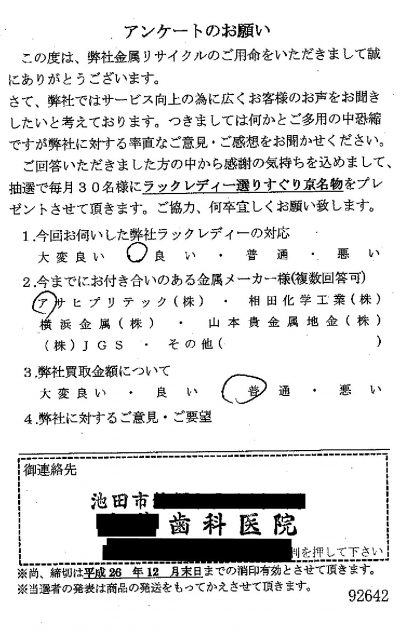 アンケートのお願い
この度は、弊社金属リサイクルのご用命をいただきまして誠
にありがとうございます。
さて、弊社ではサービス向上の為に広くお客様のお声をお聞き
したいと考えております。つきましては何かとご多用の中恐縮
ですが弊社に対する率直なご意見・ご感想をお聞かせください。
ご回答いただきました方の中から感謝の気持ちを込めまして、
抽選で毎月30名様にラックレディー選りすぐり京名物をプレ
ゼントさせて頂きます。ご協力、何卒宜しくお願い致します。
1.今回お伺いした弊社ラックレディーの対応
大変良い ・ 良い ・ 普通 ・ 悪い
2.今までにお付き合いのある金属メーカー様(複数回答可)
アサヒプリテック(株) ・ 相田化学工業(株)
横浜金属(株) ・ 山本貴金属地金(株)
(株)JGS ・ その他( )
3.弊社買取金額について
大変良い ・ 良い ・ 普通 ・ 悪い
4.弊社に対するご意見・ご要望
御連絡先
池田市
歯科医院
判を押して下さい
※尚、締切は平成26 年12 月末日までの消印有効とさせて頂きます。
※当選者の発表は商品の発送をもってかえさせて頂きます。
92642